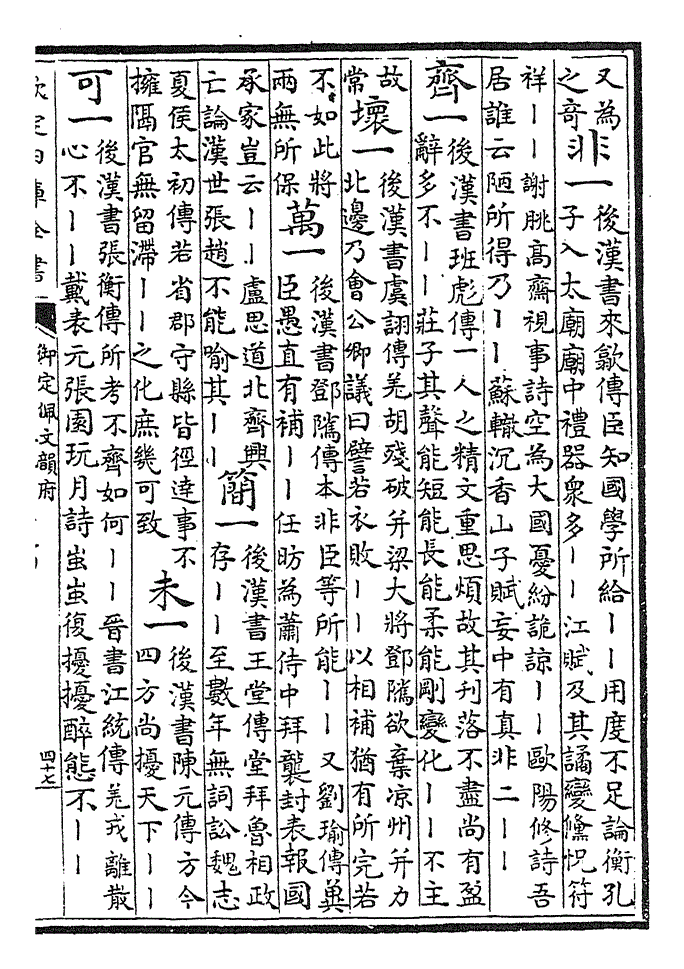 又為
之奇
非一
後漢書來歙傳臣知國學所給丨丨用度不足論衡孔
子入太廟廟中禮器衆多丨丨江賦及其譎變儵怳符
祥丨丨謝朓髙齋視事詩空為大國憂紛詭諒丨丨歐陽修詩吾
居誰云陋所得乃丨丨蘇轍沉香山子賦妄中有真非二丨丨
齊一
後漢書班彪傳一人之精文重思煩故其刋落不盡尚有盈
辭多不丨丨莊子其聲能短能長能柔能剛變化丨丨不主
故
常
壞一
後漢書虞詡傳羌胡殘破并梁大將鄧隲欲棄凉州并力
北邊乃會公卿議曰譬若衣敗丨丨以相補猶有所完若
不如此將
兩無所保
萬一
後漢書鄧隲傳本非臣等所能丨丨又劉瑜傳兾
臣愚直有補丨丨任昉為蕭侍中拜襲封表報國
承家豈云丨丨盧思道北齊興
亡論漢世張趙不能喻其丨丨
簡一
後漢書王堂傳堂拜魯相政
存丨丨至數年無詞訟魏志
夏侯太初傳若省郡守縣皆徑達事不
擁隔官無留滯丨丨之化庶幾可致
未一
後漢書陳元傳方今
四方尚擾天下丨丨
可一
後漢書張衡傳所考不齊如何丨丨晉書江統傳羌戎離散
心不丨丨戴表元張園玩月詩蚩蚩復擾擾醉態不丨丨
欽定四庫全書
御定佩文韻府
四十七